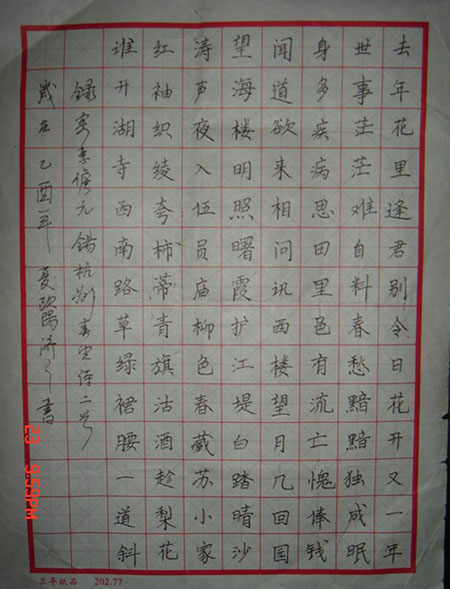 去年花里逢君别今日花开又一年
世事茫茫难自料春愁黯黯独成眠
身多疾病思田里邑有流亡愧俸钱
闻道欲来相问讯西楼望月几回国
望海楼明照曙霞护江堤白踏晴沙
涛声夜入伍员庙柳色春藏苏小家
红袖织绫夸柿蒂青旗沽酒趁梨花
谁开湖寺西南路草绿裙腰一道斜
録寄李儋元锡杭州春望诗二首
岁在乙酉年夏欧阳济之书
202.77
23 9:59PM